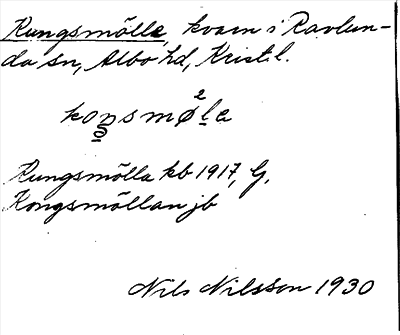 Kungsmölla, kvarn i Ravlun-
da sn, Albo hd, Krist. l.
koŋsmø²la
Kungsmölla kb 1917, G,
Kongsmöllan jb
Nils Nilsson 1930